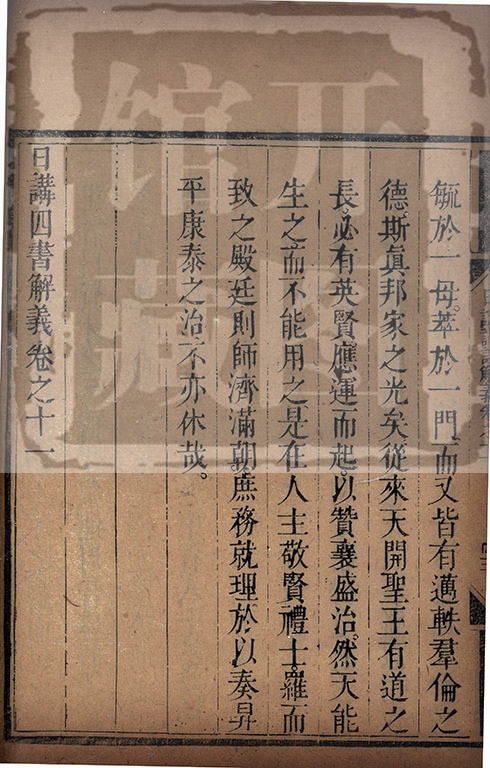 毓於一母。萃於一門。而又皆有邁軼羣倫之
德。斯眞邦家之光矣。從來天開聖王有道之
長。必有英賢應運而起。以贊襄盛治。然天能
生之。而不能用之。是在人主敬賢禮士。羅而
致之殿廷。則師濟滿朝。庶務就理。於以奏昇
平康泰之治。不亦休哉。
日講四書解義卷之十一